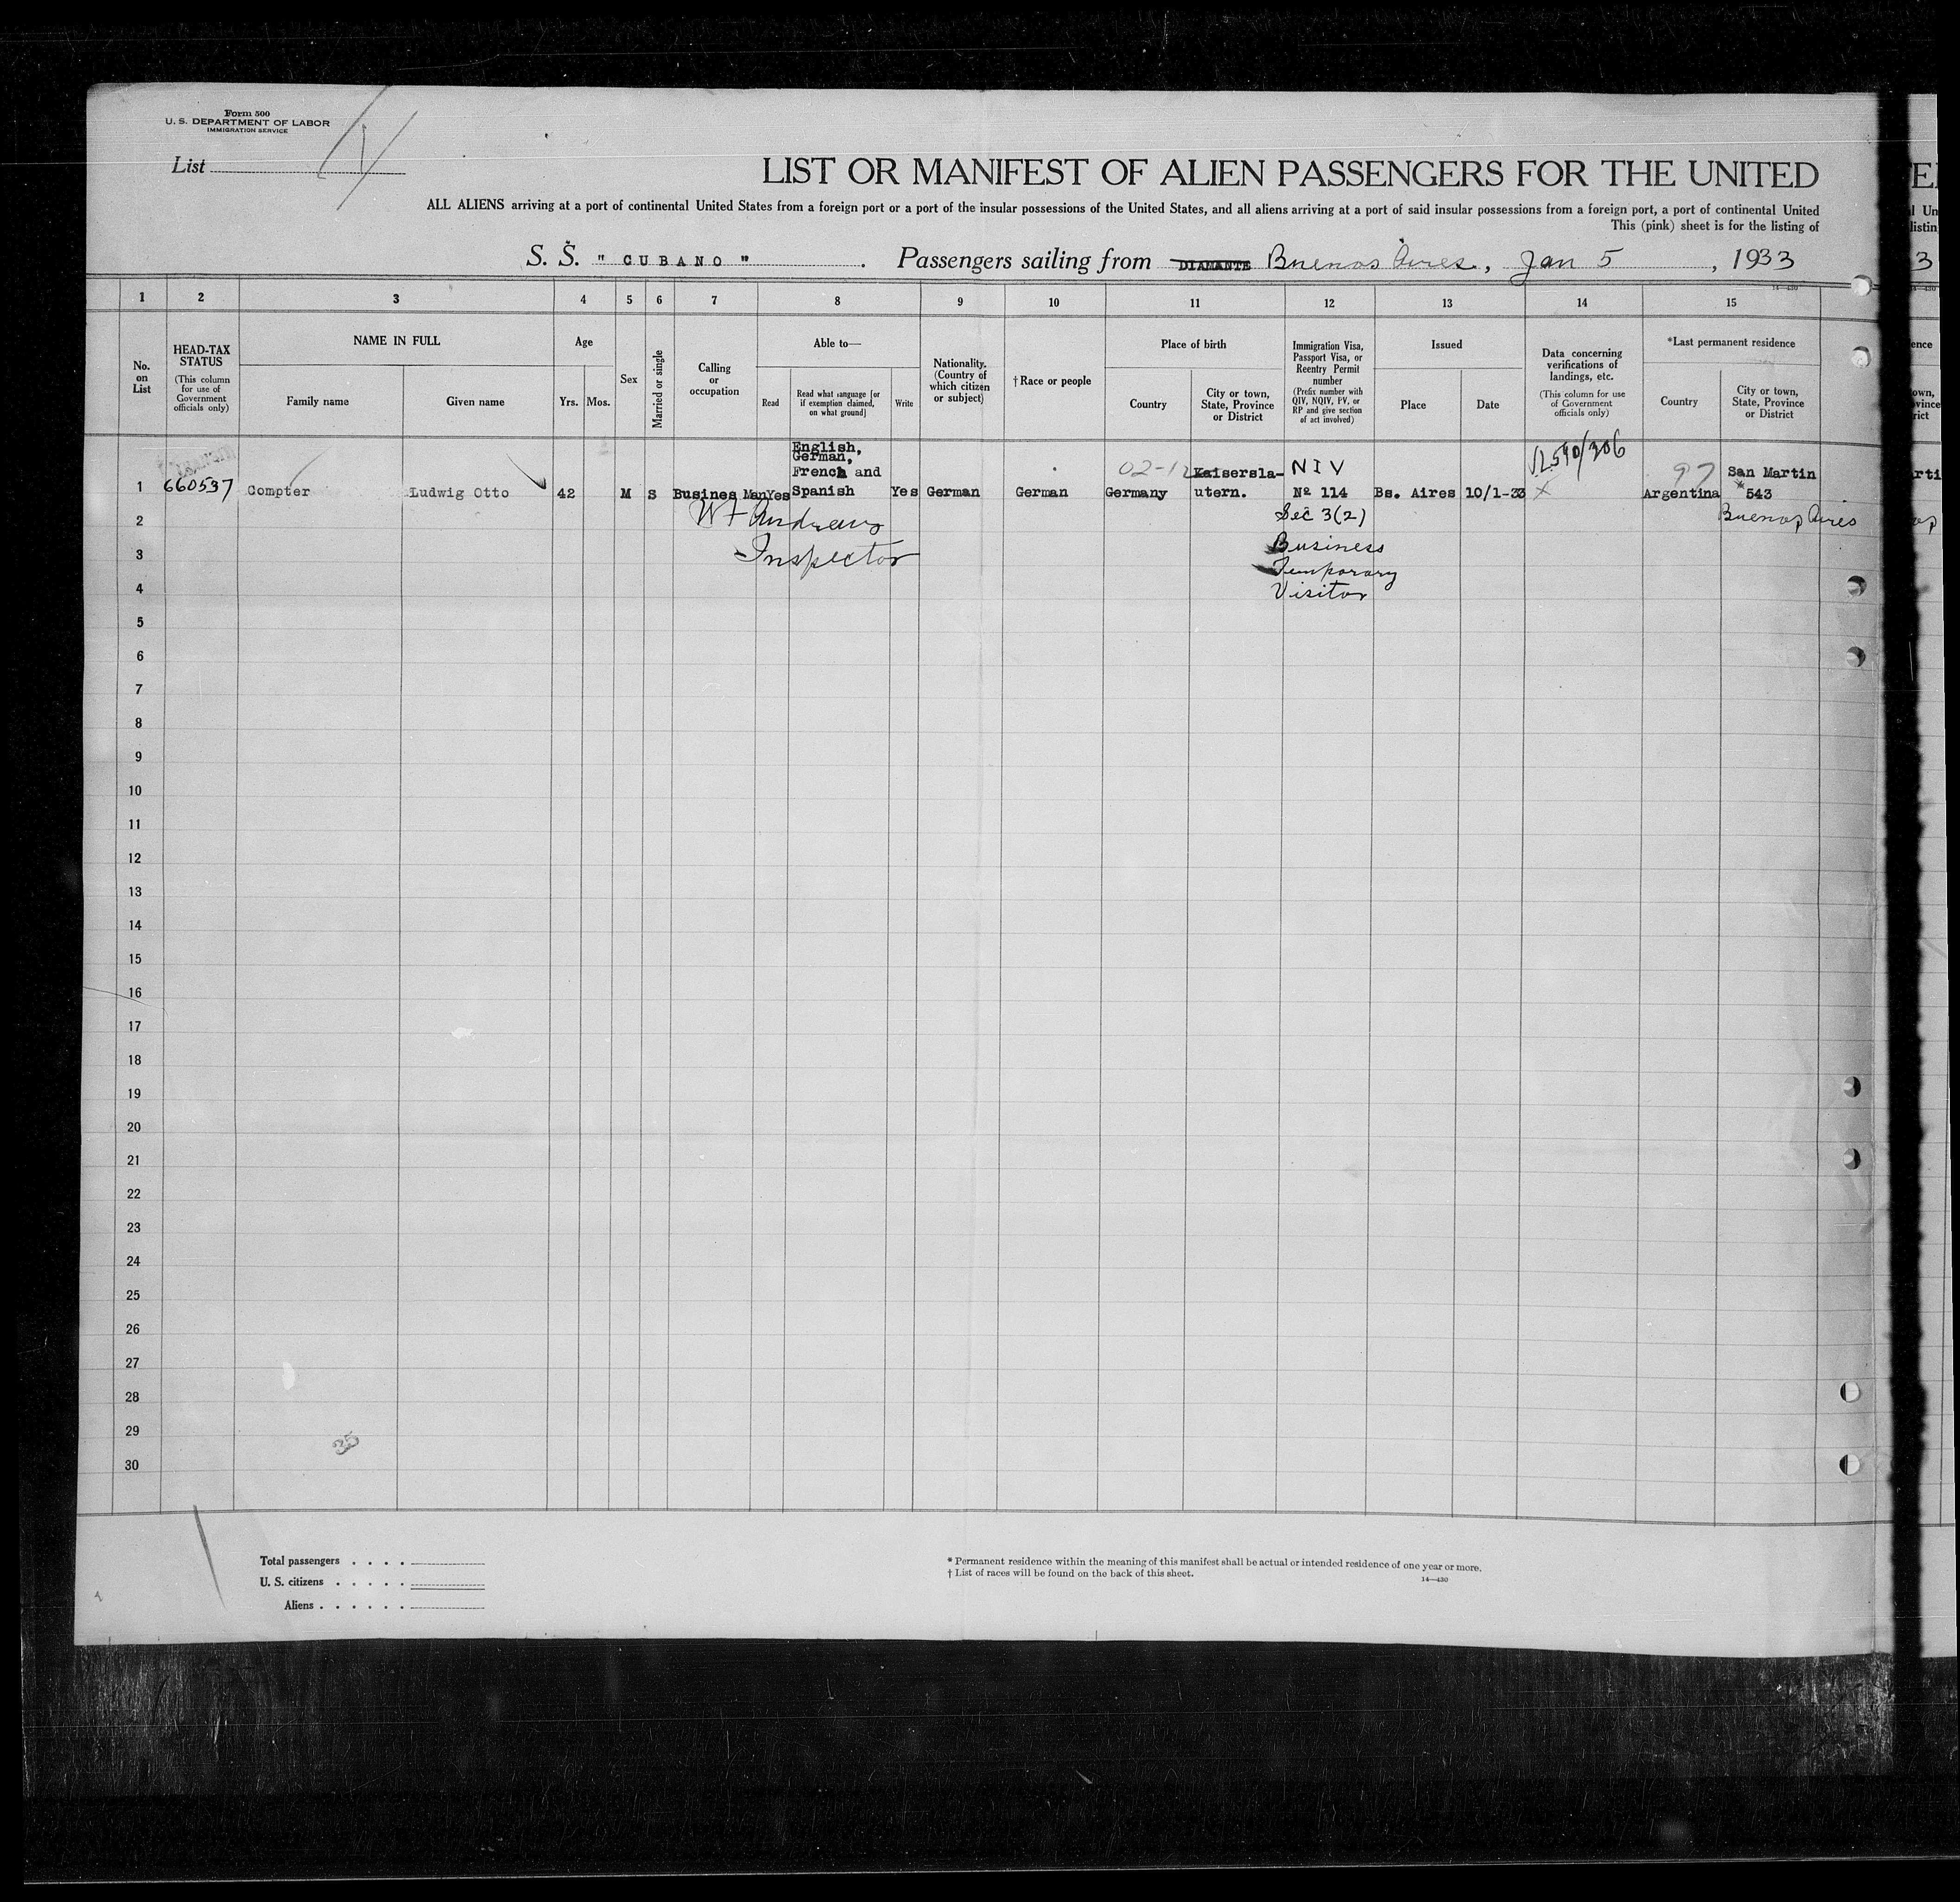 Form 500
U. S. DEPARTMENT OF LABOR
IMMIGRATION SERVICE
List
LIST OR MANIFEST OF ALIEN PASSENGERS FOR THE UNITED
ALL ALIENS arriving at a port of continental United States from a foreign port or a port of the insular possessions of the United States, and all aliens arriving at a port of said insular possessions from a foreign port, a port of continental United
This (pink) sheet is for the listing of
S. S. " CUBANO " . Passengers sailing from DIAMANTE Buenos Aires, Jan 5, 1933
14—430
1 2 3 4 5 6 7 8 9 10 11 12 13 14 15
No. on List
HEAD-TAX STATUS
(This column for use of Government officials only)
NAME IN FULL
Family name
Given name
Age
Yrs.
Mos.
Sex
Married or single
Calling or occupation
Able to—
Read
Read what language [or if exemption claimed, on what ground]
Write
Nationality. (Country of which citizen or subject)
† Race or people
Place of birth
Country
City or town, State, Province or District
Immigration Visa, Passport Visa, or Reentry Permit number
(Prefix number with QIV, NQIV, PV, or RP and give section of act involved)
Issued
Place
Date
Data concerning verifications of landings, etc.
(This column for use of Government officials only)
*Last permanent residence
Country
City or town, State, Province or District
1
660537
Compter
Ludwig Otto
42
M
S
Busines Man
Yes
English,
German,
French and
Spanish
Yes
German
German
02-12
Germany
Kaisersla-
utern.
NIV
Nº 114
Sec 3(2)
Business
Temporary
Visitor
Bs. Aires
10/1-33
X
97
Argentina
San Martin
543
Buenos Aires
Andrews
Inspector
2
3
4
5
6
7
8
9
10
11
12
13
14
15
16
17
18
19
20
21
22
23
24
25
26
27
28
29
30
35
Total passengers . . . .
U. S. citizens . . . . .
Aliens . . . . . .
* Permanent residence within the meaning of this manifest shall be actual or intended residence of one year or more.
† List of races will be found on the back of this sheet.
14—430